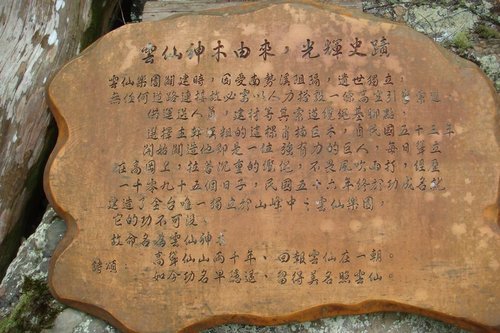 雲仙神木由來，光輝史蹟
雲仙樂園開建時，因受南勢溪阻隔，遺世獨立，
無任何道路連接故必需以人力搭設一條高空引
供運送人員、建材等具索道纜繩基柳點，
選擇五部漢粗的這棵肖楠巨木，自民國五十三年
開始開鑿他即是一位強有力的巨人，每日聳立
在高崗上，拉著沉重的纜繩，不畏風吹雨打，但
一千零九十五個日子，民國五十六年終於功成名就
建造了全台唯一獨立於山峰中之雲仙樂園，
它的功不可沒。
故命名為雲仙神木
詩頌： 高聳仙山兩千年、回報雲仙在一朝。
如今功名早隱退、留得美名照雲仙。